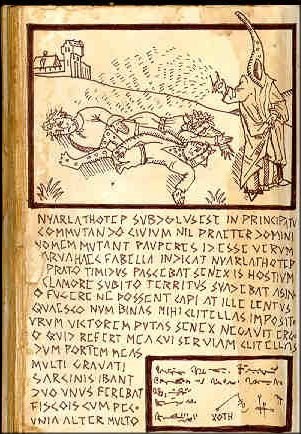 NYARLATHOTEP SUBDOLUS ESE IN PRINCIPATU
COMMUTANDO CIVIUM NIL PRAETER DOMINI
NOMEM MUTANT PAUPERES IDESSE VERUM
ARVA HAEC FABELLA INDICAT NYARLATHOTEP
PRATO TIMIDUS PASCEBAT SENEX IS HOSTIUM
CLAMORE SUBITO TERRITUS SUADEBAT ASIN
O FUGERE NE POSSENT CAPI AT ILLE LENTUS
QUAESCO NUM BINAS MIHI CLITELLAS IMPOSIT
VRUM VICTOREM PUTAS SENEX NEGAVIT ERG
O QUID REFERT MEA CUI SERVIAM CLITELLAS
DUM PORTEM MEAS
MULTI GRAVATI
SARCINIS IBANT
DUO VNUS FEREBAT
FISCOIS CUM PEC
UNIA ALTER MULTO
XOTH